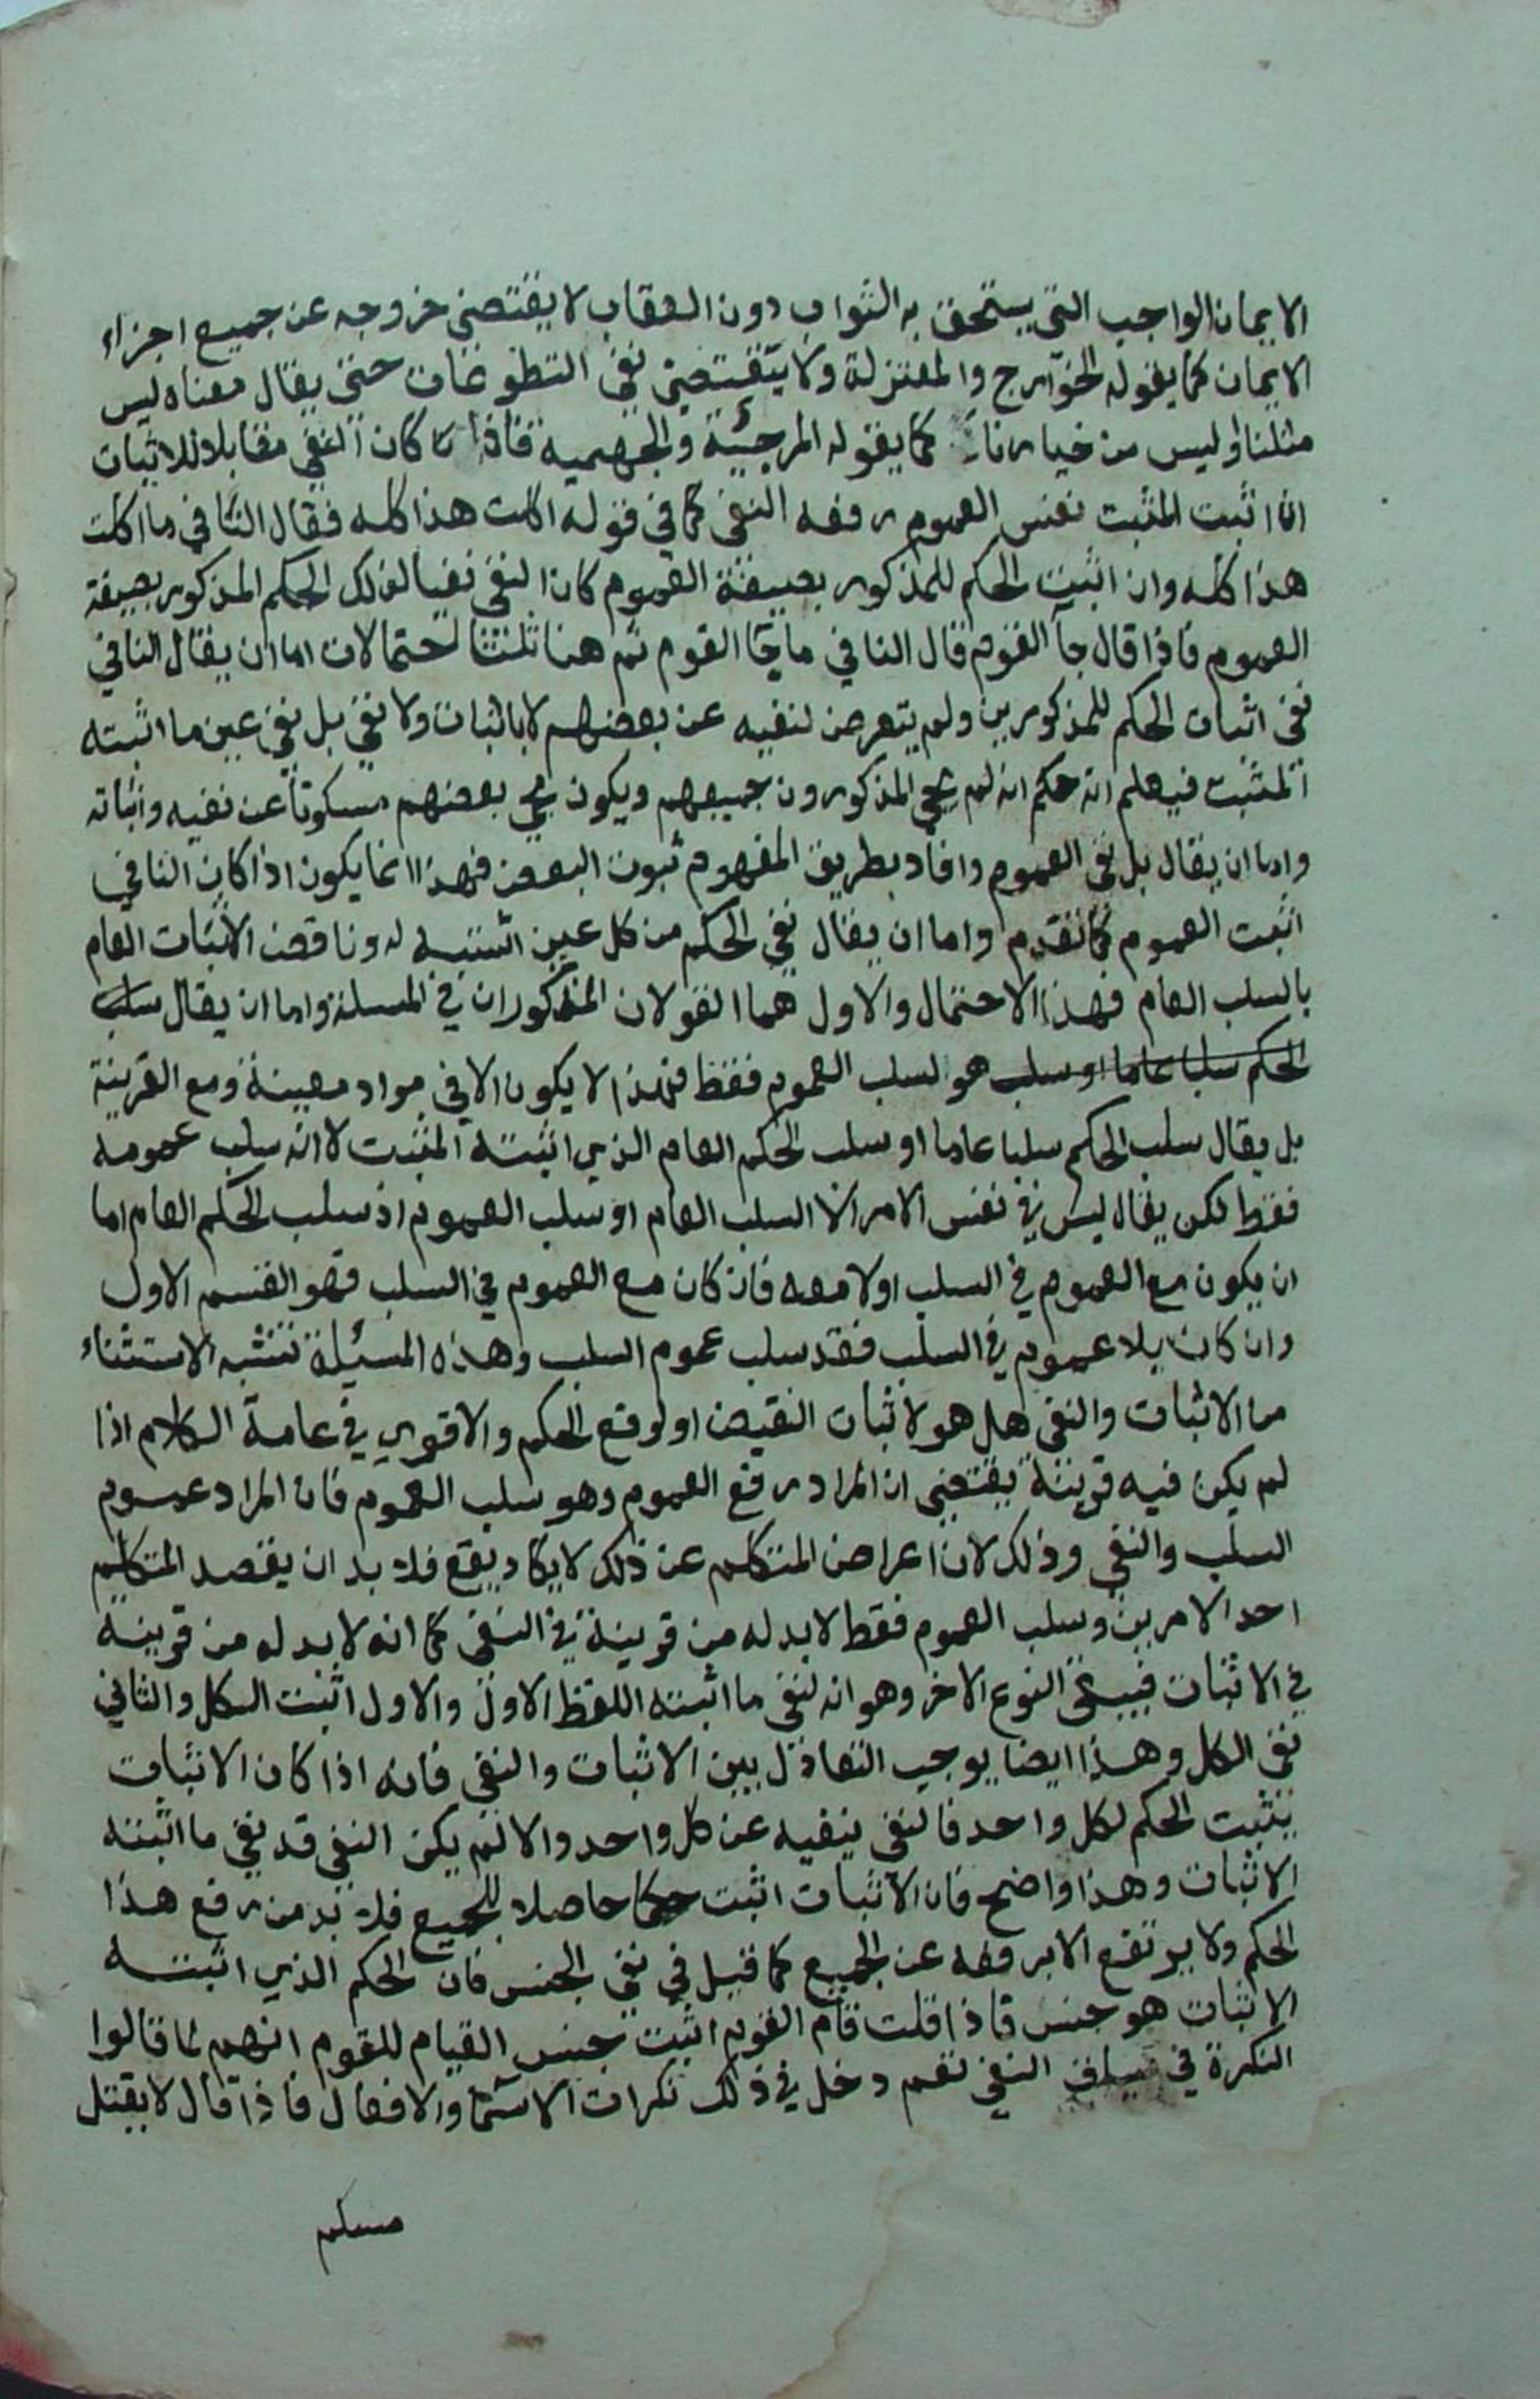 الايمان الواجب التي يستحق به الثواب دون العقاب لا يقتضي خروجه عن جميع اجزاء
الايمان كما يقوله الخوارج والمعتزلة ولا يقتضي نفي التطوعات حتى يقال معناه ليس
مثلنا وليس من خيارنا كما يقوله المرجئة والجهمية فاذا كان النفي مقابلا للاثبات
ان اثبت المثبت نفس العموم رفعه النفي كما في قوله اكلت هذا كله فقال الثاني ما اكلت
هذا كله وان اثبت الحكم للمذكور بصيغة العموم كان النفي نفيا لذلك الحكم المذكور بصيغة
العموم فاذا قال جآ القوم قال النافي ما جآ القوم ثم هنا ثلثتا احتمالات اما ان يقال النافي
نفى اثبات الحكم للمذكورين ولم يتعرض لنفيه عن بعضهم لا باثبات ولا نفي بل نفي عين ما اثبته
المثبت فيعلم انه حكم انه لم يجي المذكورون جميعهم ويكون مجي بعضهم مسكوتا عن نفيه واثباته
واما ان يقال بل نفي العموم وافاد بطريق المفهوم ثبوت البعض فهذا انما يكون اذا كان النافي
اثبت العموم كما تقدم واما ان يقال نفي الحكم من كل عين اثبته له وناقض الاثبات العام
بالسلب العام فهذا الاحتمال والاول هما القولان المذكوران في المسلة واما ان يقال سلب
الحكم سلبا عاما او سلب هو لسلب العموم فقط فهذا لا يكون الا في مواد معينة ومع القرينة
بل يقال سلب الحكم سلبا عاما او سلب الحكم العام الذي اثبته المثبت لا انه سلب عمومه
فقط لكن يقال ليس في نفس الامر الا السلب العام او سلب العموم اذ سلب الحكم العام اما
ان يكون مع العموم في السلب او لا معه فان كان مع العموم في السلب فهو القسم الاول
وان كان بلا عموم في السلب فقد سلب عموم السلب وهذه المسئلة تشبه الاستثناء
من الاثبات والنفي هل هو لاثبات النقيض او لرفع الحكم والاقوي في عامة الكلام اذا
لم يكن فيه قرينة يقتضي ان المراد رفع العموم وهو سلب العموم فان المراد عموم
السلب والنفي وذلك لان اعراض المتكلم عن ذلك لا يكاد يقع فلا بد ان يقصد المتكلم
احد الامرين وسلب العموم فقط لا بد له من قرينة في النفي كما انه لا بد له من قرينة
في الاثبات فيبقى النوع الاخر وهو انه لنفي ما اثبته اللفظ الاول والاول اثبت الكل والثاني
نفى الكل وهذا ايضا يوجب التعادل بين الاثبات والنفي فانه اذا كان الاثبات
يثبت الحكم لكل واحد فالنفي ينفيه عن كل واحد والا لم يكن النفي قد نفى ما اثبته
الاثبات وهذا واضح فان الاثبات اثبت حكما حاصلا للجميع فلا بد من رفع هذا
الحكم ولا يرتفع الا برفعه عن الجميع كما قيل في نفي الجنس فان الحكم الذي اثبته
الاثبات هو جنس فاذا قلت قام القوم اثبت جنس القيام للقوم انهم لما قالوا
النكرة في سياق النفي تعم دخل في ذلك نكرات الاسما والافعال فاذا قال لا يقتل
مسلم